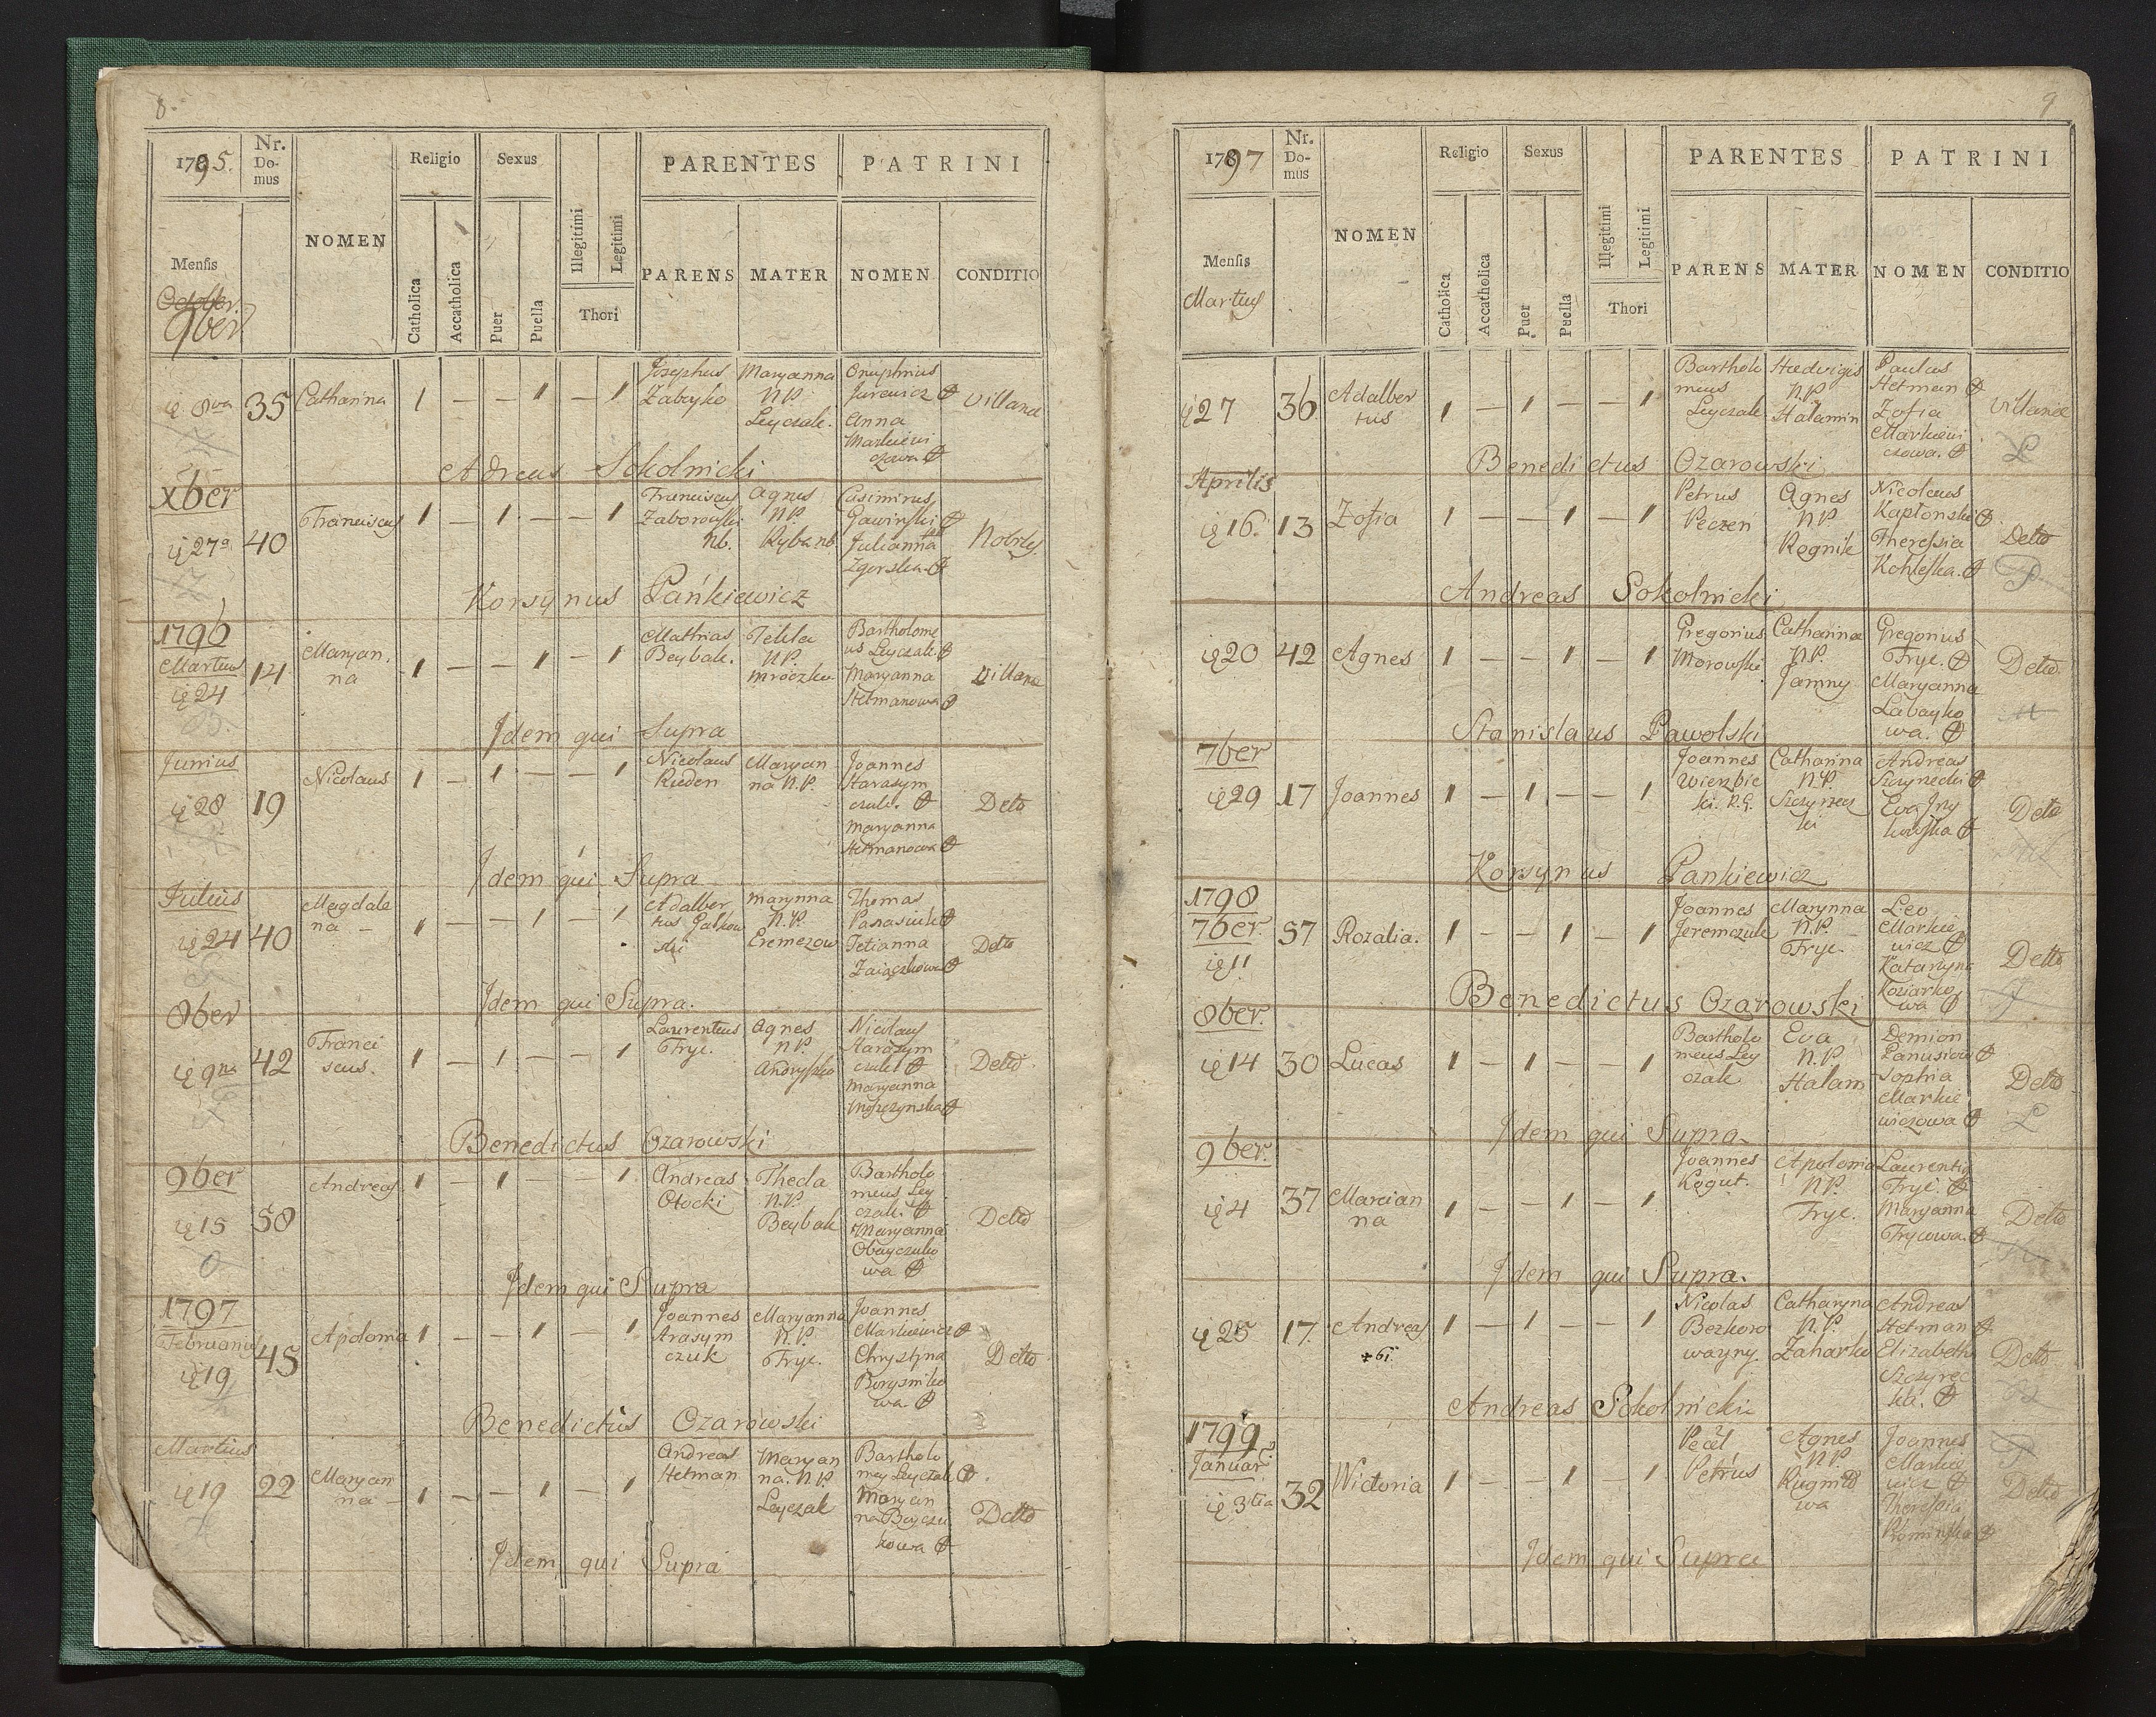 8.
1795.
Nr. Do- mus
NOMEN
Religio
Sexus
PARENTES
PATRINI
Mensis
October.
9ber
Catholica
Accatholica
Puer
Puella
Illegitimi
Legitimi
Thori
PARENS
MATER
NOMEN
CONDITIO
8va 35 Catharina 1 — — 1 — 1
Josephus
Maryanna
N.P.
Leyczak.
Onuphrius
Jurewicz
Anna
Markiewi
czowa
Villanae
Adreas Sokolnicki
Xber
27a 40 Franciscus 1 — 1 — — 1
Franciscus
Zaborowski
nb.
Agnes
N.P.
Ryba nb
Casimirus
Gawinski
Julianna
Zgorska
Nobiles
Korsynus Pańkiewicz
1796
Martius
24
14
Maryan.
na
1 — — 1 — 1
Mathias
Beybak.
Tekla
N.P.
Mroczko
Bartholome
us Leyczak.
Maryanna
Hetmanowa
Villanae
Idem qui Supra
Junius
28 19 Nicolaus 1 — 1 — — 1
Nicolaus
Maryan
na N.P.
Joannes
Harasym
czuk.
Maryanna
Hetmanowa
Detto
Idem qui Supra
Julius
24 40
Magdale
na —
1 — — 1 — 1
Adalber
tus Galkow
ski
Marynna
N.P.
Eremezow
Thomas
Panasiuk
Tetianna
Zaiączkowa
Detto
Idem qui Supra.
8ber
9na 42
Franci
scus.
1 — 1 — — 1
Laurentius
Fryc.
Agnes
N.P.
Andryszko
Nicolaus
Harasym
czuk
Maryanna
Detto
Benedictus Ozarowski
9ber
15 58 Andreas 1 — 1 — — 1
Andreas
Otocki
Theda
N.P.
Beybak
Bartholo
meus Ley
czak.
Maryanna
Obayczuko
wa
Detto
O
Idem qui Supra
1797
Februarius
19
45 Apolonia 1 — — 1 — 1
Joannes
Arasym
czuk
Maryanna
N.P.
Fryc.
Joannes
Markiewicz
Chrystyna
Borysniko
wa.
Detto
Benedictus Ozarowski
Martius
19 22
Maryan
na
1 — — 1 — 1
Andreas
Hetman
Maryan
na N.P.
Leyczak
Bartholo
mey Leyczak
Maryan
na Bayczu
kowa
Detto
Idem qui Supra
9
1797
Nr. Do- mus
NOMEN
Religio
Sexus
PARENTES
PATRINI
Mensis
Martius
Catholica
Accatholica
Puer
Puella
Illegitimi
Legitimi
Thori
PARENS
MATER
NOMEN
CONDITIO
27 36
Adalber
tus
1 — 1 — — 1
Bartholo
meus
Leyczak
Hedvigis
N.P.
Halamin
Paulus
Hetman
Zofia
Markiewi
czowa.
Villanae
L
Benedictus Ozarowski
Aprilis
16. 13 Zofia 1 — — 1 — 1
Petrus
Peczen
Agnes
N.P.
Rognik
Nicolaus
Kapłonski
Theressia
Kohleska.
Detto
P
Andreas Sokolnicki
20 42 Agnes 1 — — 1 — 1
Gregorius
Morowski
Catharina
N.P.
Jamny
Gregorius
Fryc.
Maryanna
Labayko
wa.
Detto
M
Stanislaus Pawolski
7ber
29 17 Joannes 1 — 1 — — 1
Joannes
Wierzbic
ki. R.G.
Catharina
N.P.
Szczyrzec
ki
Andreas
Szczynecki
Eva
Detto
Korsynus Pankiewicz
1798
7ber.
11
57 Rozalia. 1 — — 1 — 1
Joannes
Jeremczuk
Marynna
N.P.
Fryc.
Leo
Markie
wicz
Katarzyna
Koziarko
wa
Detto
J
Benedictus Ozarowski
8ber.
14 30 Lucas 1 — 1 — — 1
Bartholo
meus Ley
czak
Eva
N.P.
Halam
Demion
Panusiow
Sophia
Markie
wiczowa
Detto
L
Idem qui Supra
9ber.
4 37
Marcian
na
1 — — 1 — 1
Joannes
Kogut.
Apolonia
N.P.
Fryc.
Laurentius
Fryc.
Maryanna
Frycowa.
Detto
Idem qui Supra.
25 17. Andreas 1 — 1 — — 1
Nicolas
Bezkoro
wayny.
Catharyna
N.P.
Zaharko
Andreas
Hetman
Elizabetha
Szczyrec
ka.
Detto
B
Andreas Sokolnicki
1799.
Januar.
3tia 32 Wictoria 1 — — 1 1
Pecel
Petrus
Agnes
N.P.
wa
Joannes
Markie
wicz
Theressia
Detto
P
Idem qui Supra